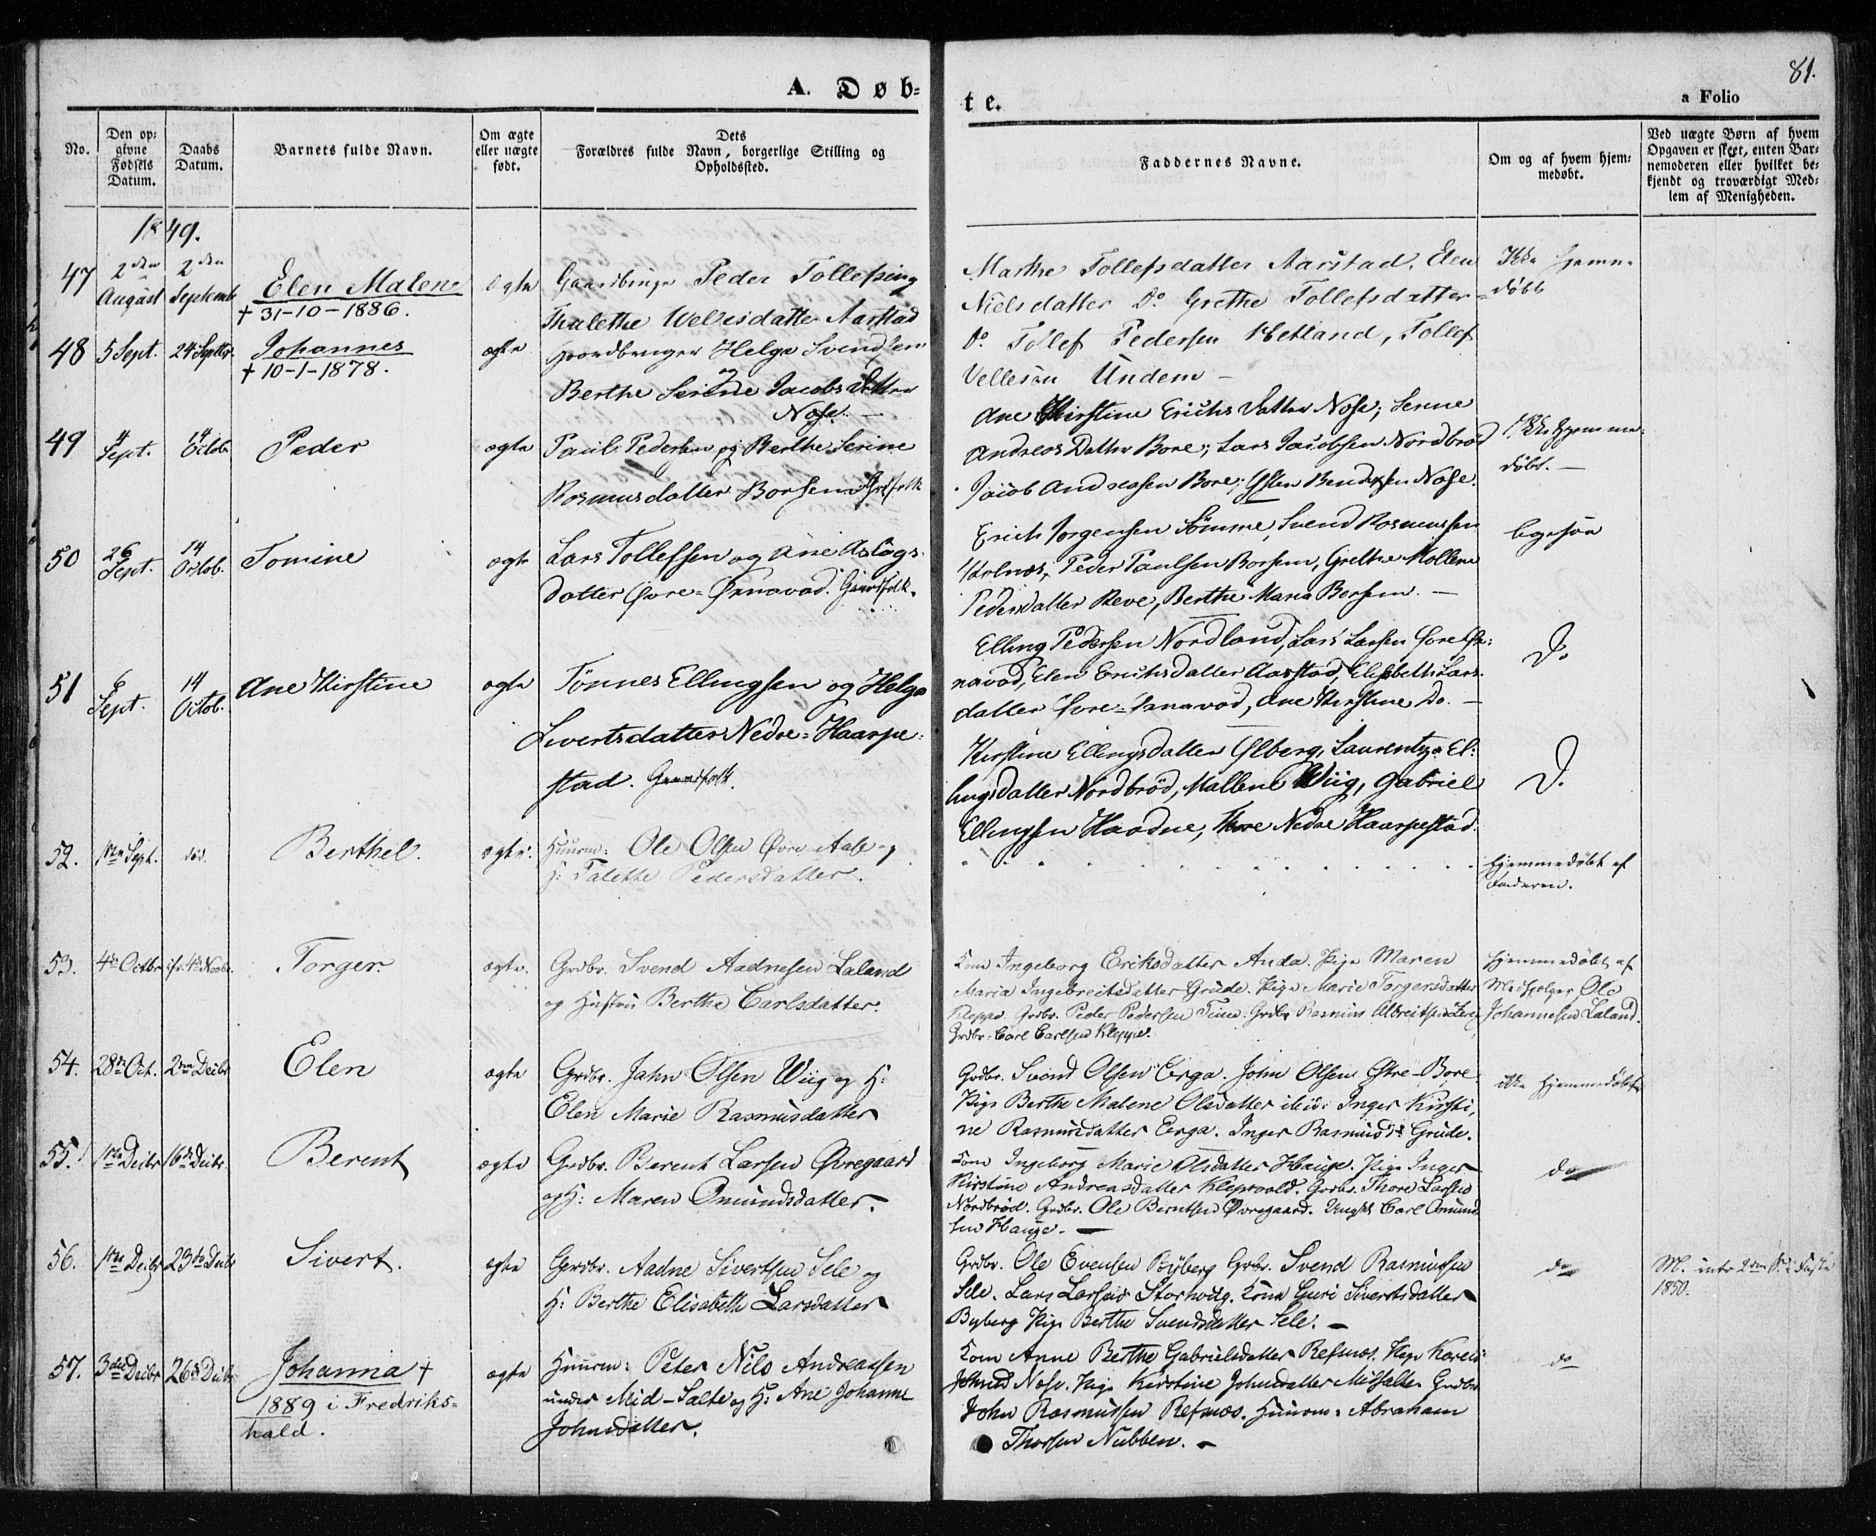 81.
A. Døb-
te.
a Folio
No.
Den op-
givne
Fødsels
Datum.
Daabs
Datum.
Barnets fulde Navn.
Om ægte
eller uægte
født.
Dets
Forældres fulde Navn, borgerlige Stilling og
Opholdssted.
Faddernes Navne.
Om og af hvem hjem-
medøbt.
Ved uægte Børn af hvem
Opgaven er skeet, enten Bar-
nemoderen eller hvilket be-
kjendt og troværdigt Med-
lem af Menigheden.
1849.
47
2den
August
2den
Septembr
Elen Malene
† 31-10-1886.
ægte
Peder Tollefsen og
Thalethe Wellesdatter Aarstad
Marthe Tollefsdatter Aarstad, Elen
Nielsdatter Do Grethe Tollefsdatter
Do Tollef Pedersen Hetland, Tollef
Vellesøn Undem
Ikke hjemme-
døbt
48
5 Sept.
24 Septbr.
Johannes
† 10-1-1878.
ægte
Gaardbruger Helge Svendsen
og
Berthe Serine Jacobs Datter
Nose.
Ane Kirstine Erichs Datter Nose; Serine
Andreas Datter Bore; Lars Jacobsen Nordbrød
Jacob Andreasen Bore; Bendixsen Nose.
Ikke hjemme-
døbt.
49
4
Sept.
14
Octob.
Peder
ægte
Paul Pedersen og Berthe Serine
Rasmusdatter Borsem
Erich Jorgensen Sømme, Svend Rasmussen
Peder Paulsen Borsem, Grethe Mallene
Pedersdatter Reve, Berthe Maria Borsem.
ligesaa
50
26
Sept.
14
Octob.
Tomine
ægte
Lars Tollefsen og Ane Aslags-
datter Øvre-Ørnavad. Gaardfolk.
Elling Pedersen Nordland, Lars Larsen Øvre Ør-
navad, Elen Erichsdatter Aarstad, Elisabeth Lars-
datter Øvre-Ørnavad, Ane Kirstine Do.
D.
51
6
Sept.
14
Octob.
Ane Kirstine
ægte
Tønnes Ellingsen og Helga
Sivertsdatter Nedre-Haarpe-
stad. Gaardfolk.
Kirstine Ellingsdatter Ølberg, El-
lingsdatter Nordbrød, Mallene Wiig, Gabriel
Ellingsen Haadne, Thore Nedre Haarpestad.
D.
52.
1ste Sept.
død.
Berthel.
ægte.
Huusm: Ole Olsen Øvre Aase og
H: Talette Pedersdatter.
Hjemmedøbt af
Faderen.
53.
4de Octbr
4de Novbr.
Torger.
ægte.
Grdbr. Svend Aadnesen Laland
og Hustru Berthe Carlsdatter.
Kone Ingeborg Eriksdatter Anda. Pige Maren
Maria Ingebreitsdatter Grude. Pige Marie Torgersdatter
Kleppe. Grdbr. Peder Pedersen Time. Grdbr Rasmus Albreitsen
Grdbr. Carl Carlsen Kleppe.
Hjemmedøbt af
Medhjelper Ole
Johannesen Laland.
54.
28de Oct.
2den Decbr
Elen
ægte
Grdbr. Jahn Olsen Wiig og H:
Elen Marie Rasmusdatter
Grdbr. Svend Olsen Erga. John Olsen Øvre-Bore.
Pige Berthe Malene Olsdatter ibid: Inger Kirsti-
ne Rasmusdatter Erga. Inger Rasmusdr Grude.
ikke hjemmedøbt
55.
1ste Decbr
16de Decbr.
Berent
ægte
Grdbr. Berent Larsen Øvregaard
og H: Maren Omundsdatter.
Kone Ingeborg Marie Olsdatter Hauge. Pige Inger
Kirstine Andreasdatter Klepvold. Grdbr. Thore Larsen
Nordbrød. Grdbr. Ole Berntsen Øvregaard. Ungk. Carl Omund-
sen Hauge.
do
56.
1ste Decbr
23de Decbr
Sivert.
ægte
Grdbr. Aadne Sivertsen Sele og
H: Berthe Elisabeth Larsdatter
Grdbr. Ole Evensen Byberg Grdbr. Svend Rasmussen
Sele. Lars Larsen Storhoug. Kone Guri Sivertsdatter
Byberg Pige Berthe Svendsdatter Sele.
do
M. intr 2den S. i Faste
1850.
57.
3die Decbr
26de Decbr
Johanna †
1889 i Fredriks-
hald.
ægte
Huusm: Peter Nils Andreassen
under Mid-Salte og H: Ane Johanne
Johnsdatter.
Kone Anne Berthe Gabrielsdatter Refsnes. Pige Karen
Johnsd Nose. Pige Kirstine Johnsdatter Midsalte. Grdbr
John Rasmussen Refsnes. Huusm: Abraham
Thorsen Nubben.
do